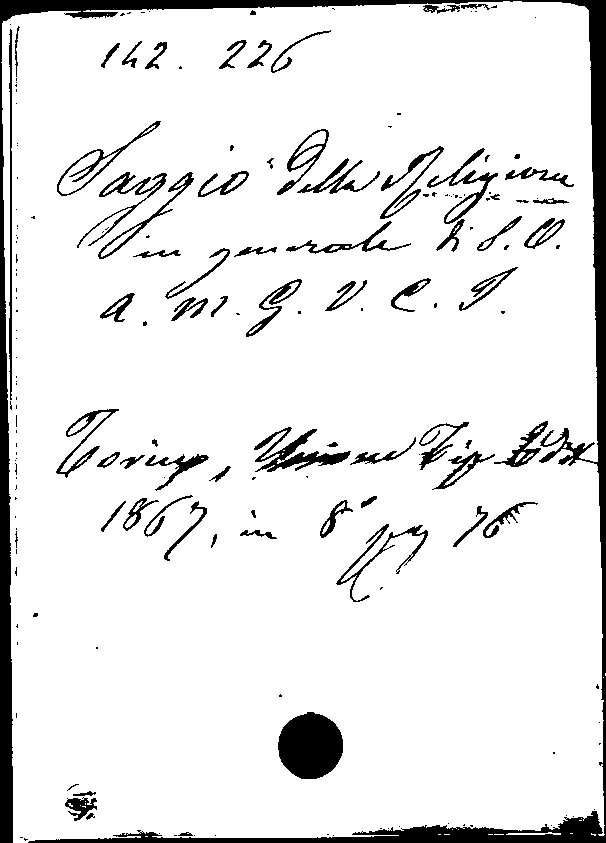 142. 226
Saggio della Religione
in generale di S. O.
a. M. G. V. C. T.
Torino, Unione Tip Edit
1867, in 8° pag 76